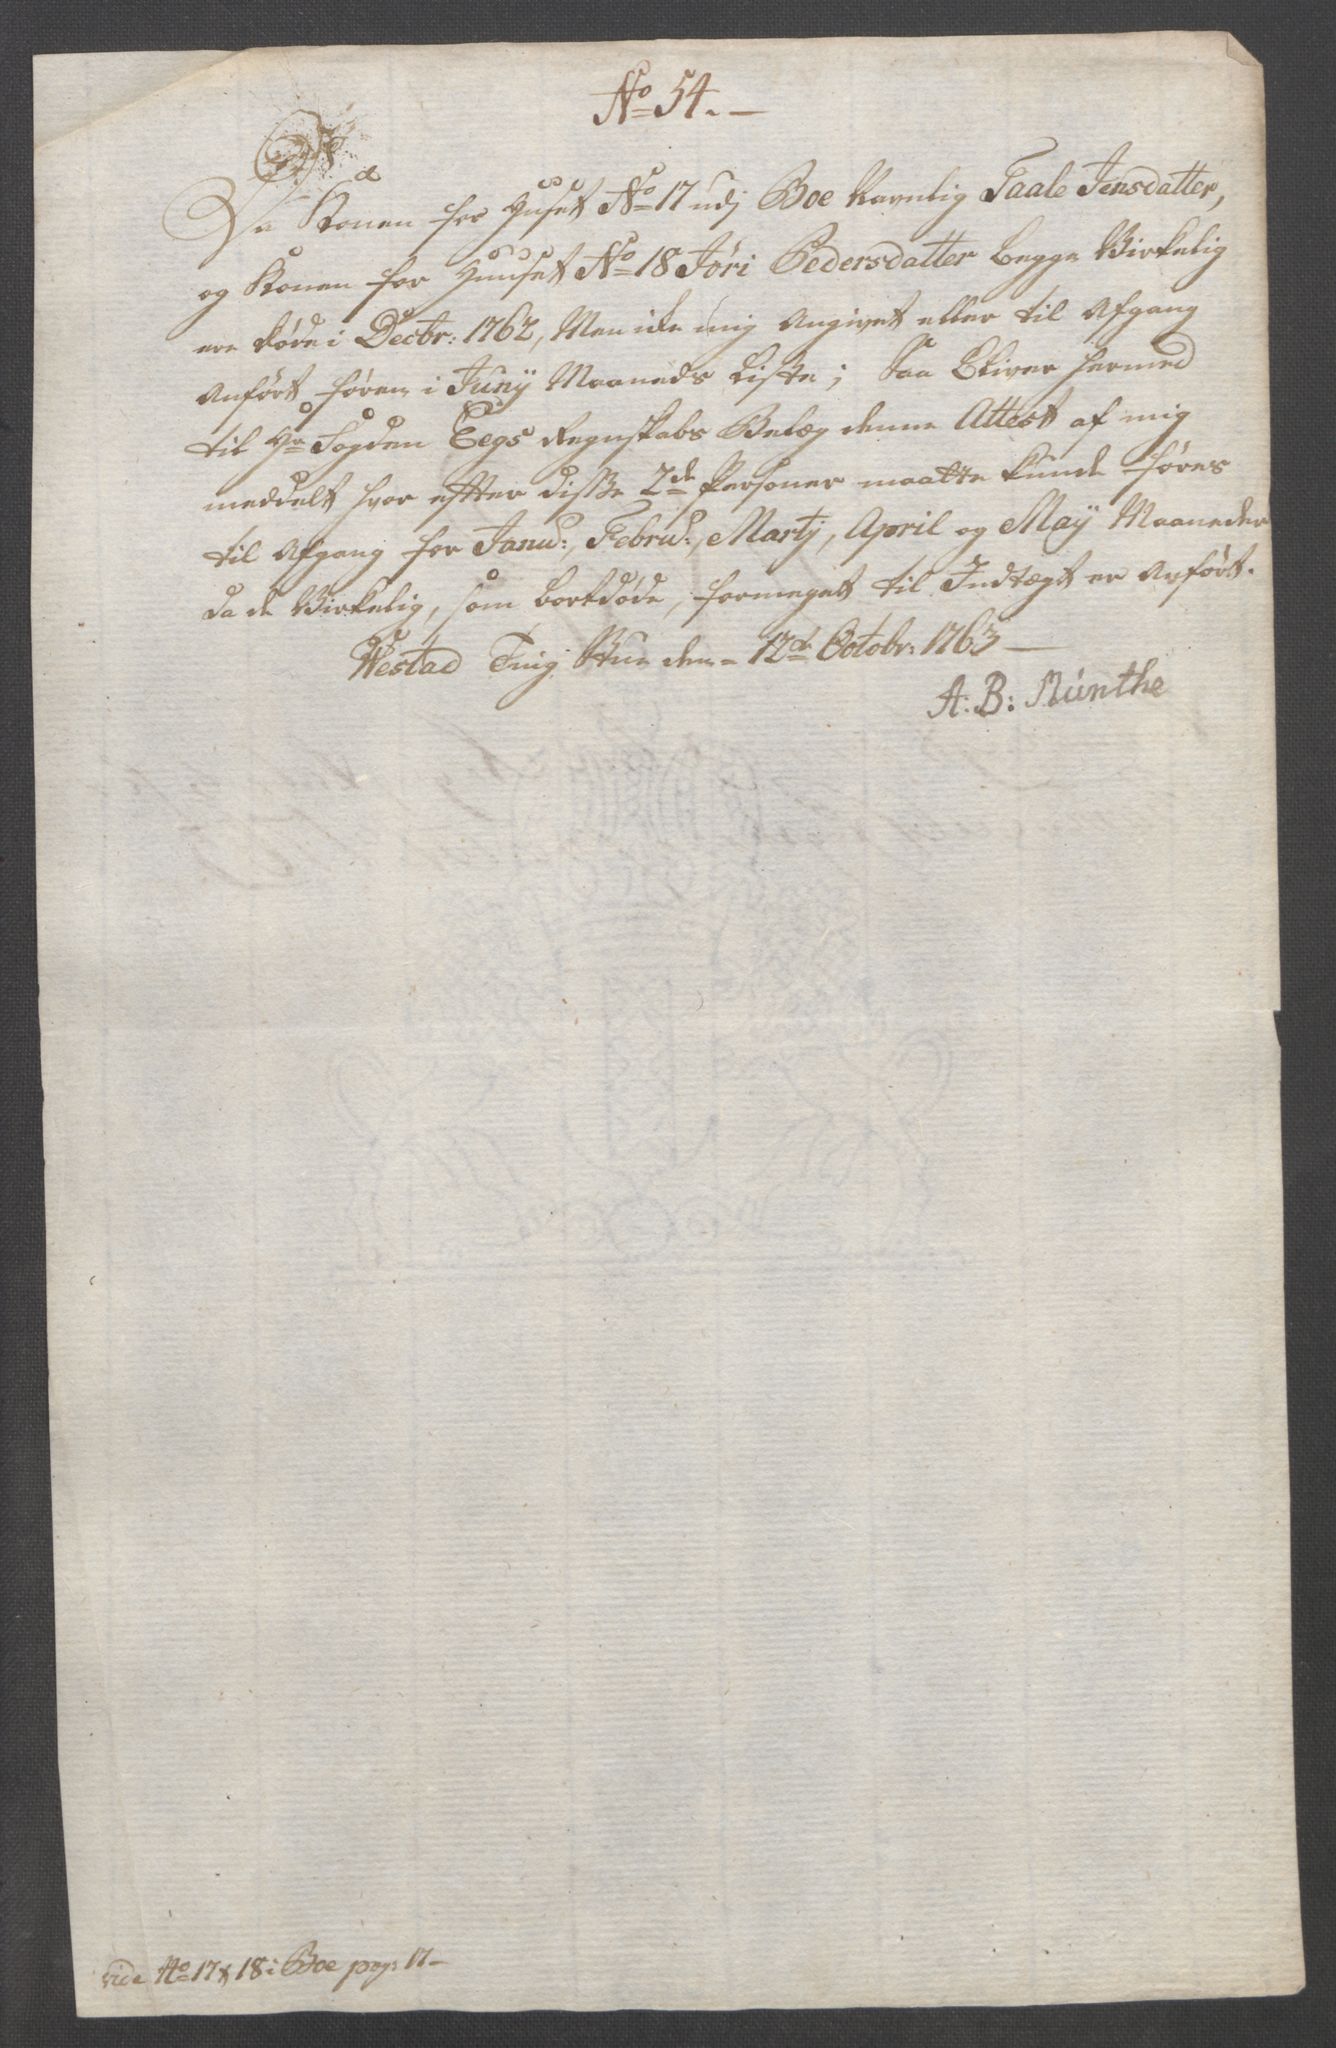 No 54. —
Da Konen for Huset No 17 udj Boe Navnlig Taale Jensdatter,
og Konen for Huuset No 18 Jöri Pedersdatter begge Virkelig
ere døde i Decbr: 1762, Men icke mig Angivet eller til Afgang
Anført förend i Junÿ Maaneds Liste; Saa bliver hermed
til Hr Fogden Eegs Regnskabs Belæg denne Attest af mig
meddelt hvor effter disse 2de Personer maatte kunde føres
til Afgang for Janu:, Febru:, Martj, April og Maÿ Maaneder
da de Virkelig, som bortdøde, formeget til Indtægt er Anført.
Westad Ting Stue den – 12de Octobr: 1763 —
A: B: Münthe
vide No 17 & 18 i Boe pag: 17 –